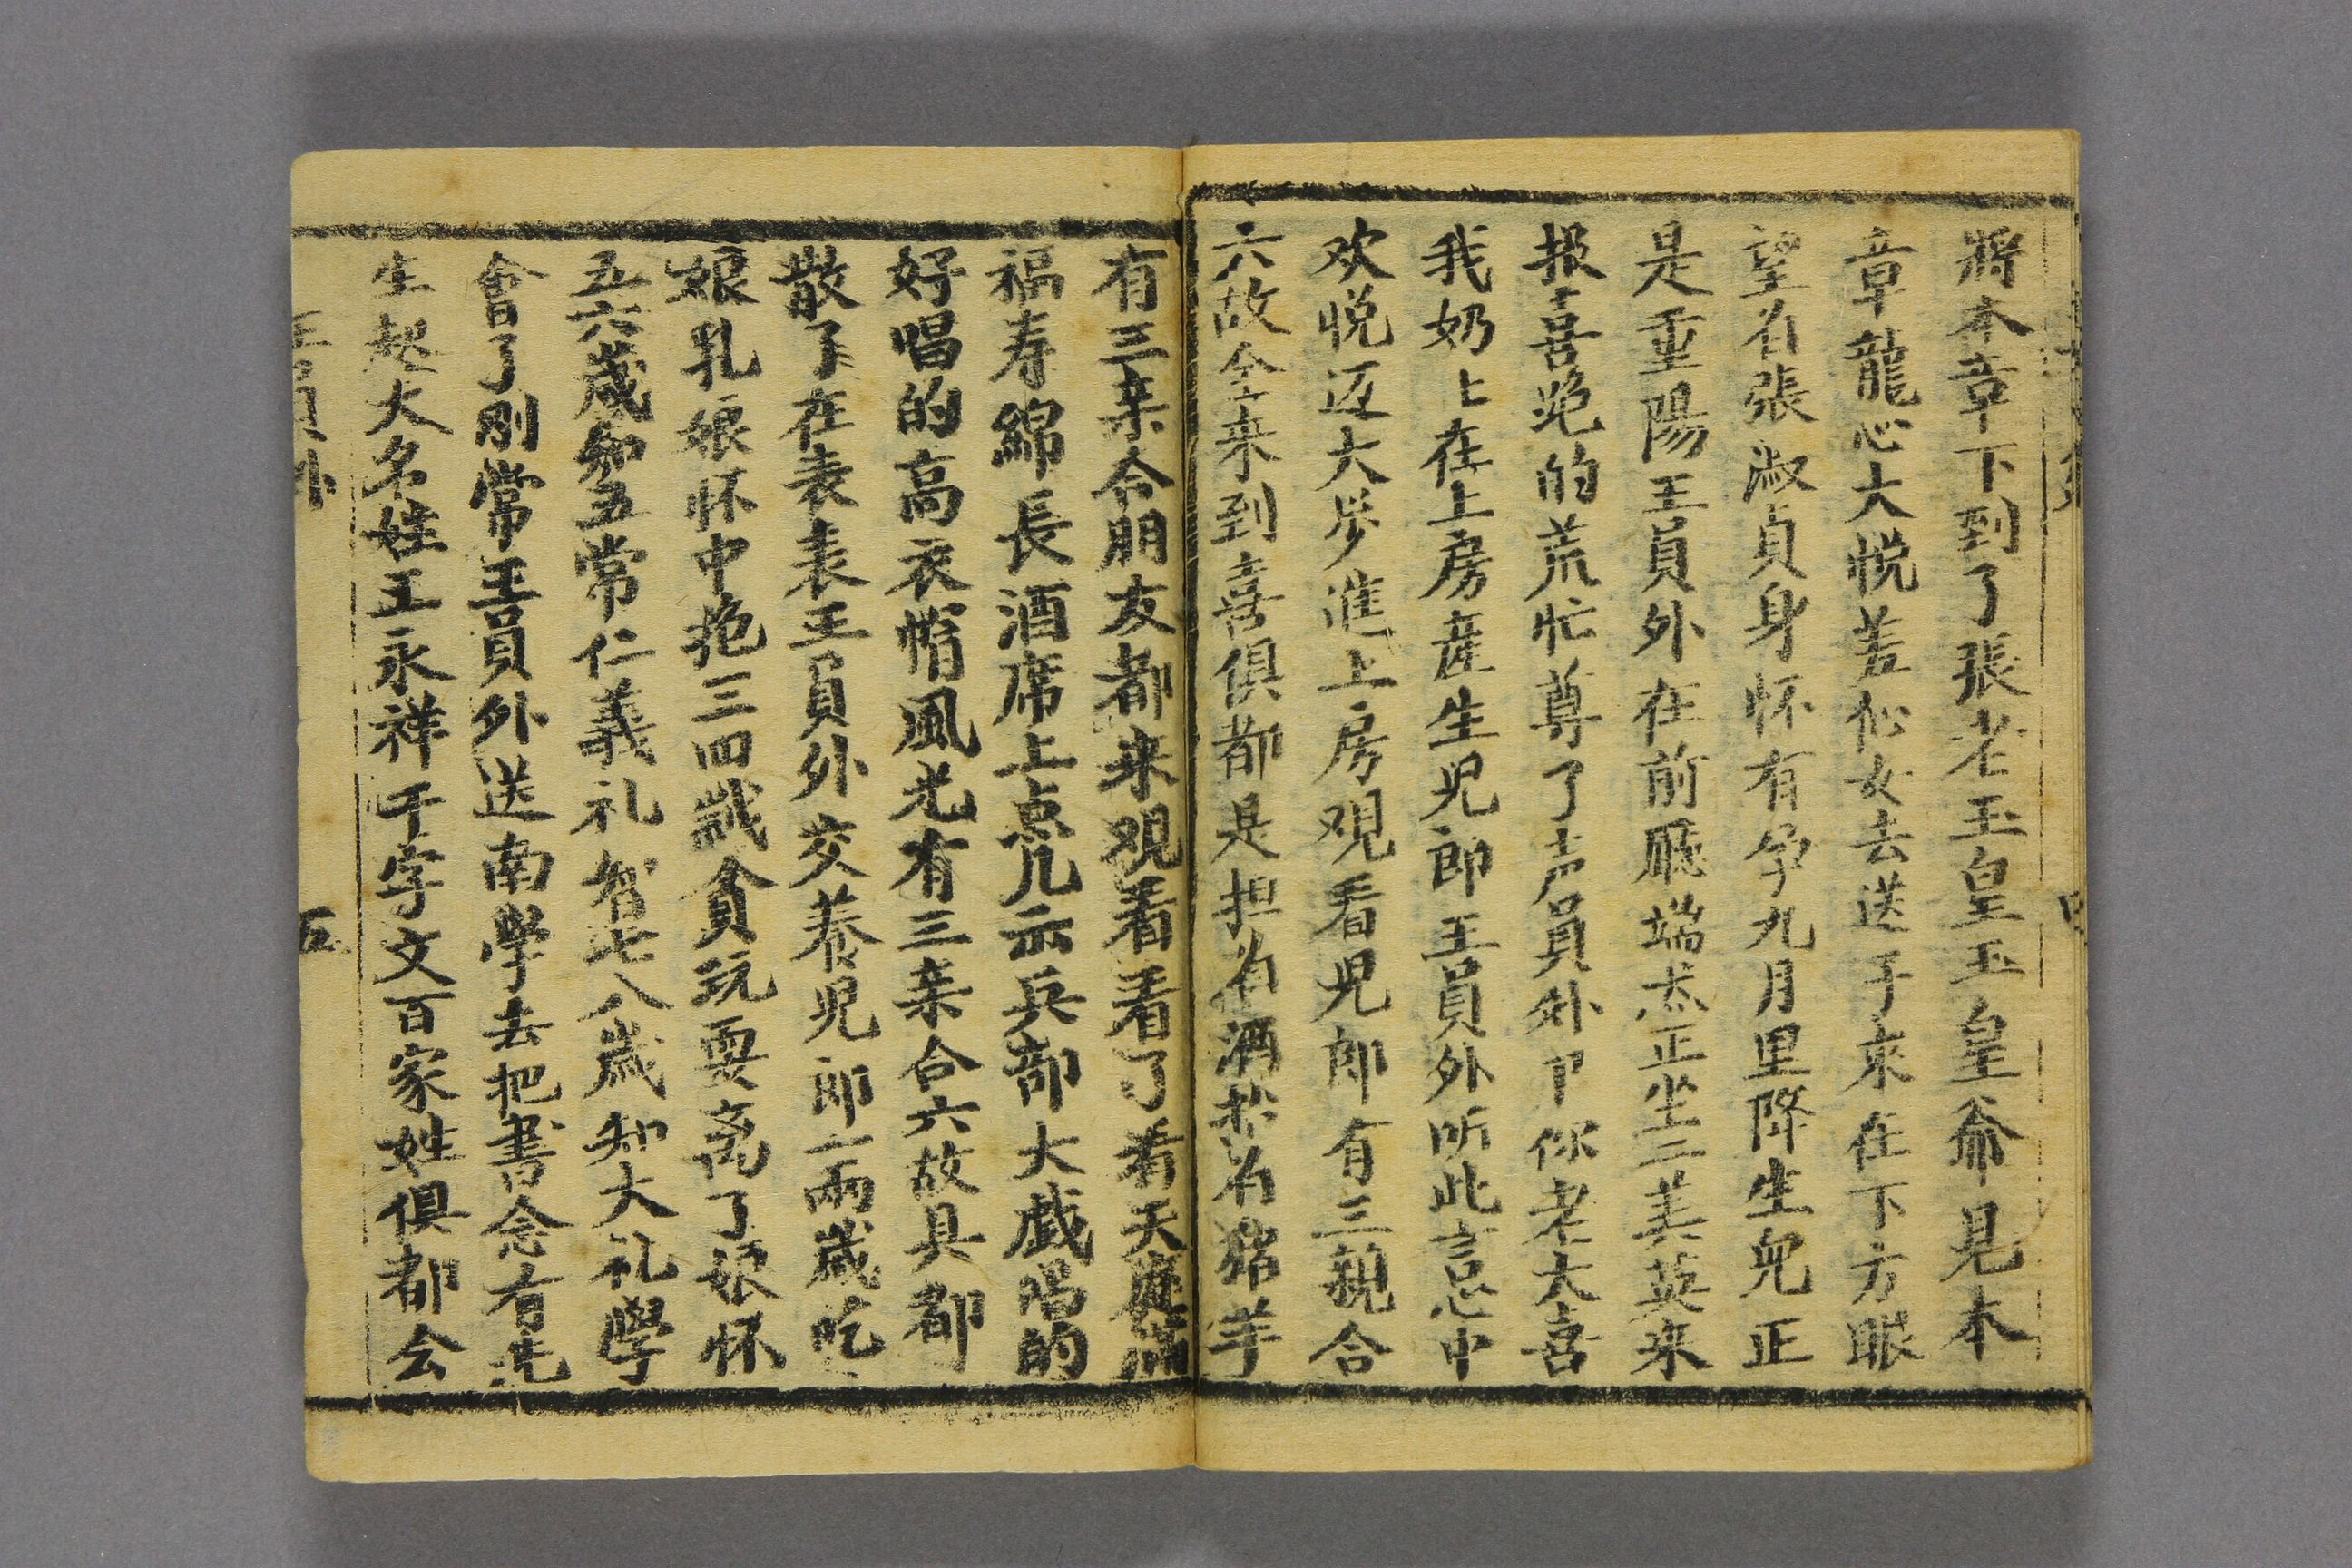 將本章下到了張老玉皇玉皇爺見本
章龍心大悦差仙女去送子來在下方眼
望着張淑貞身怀有孕九月里降生兒正
是重陽王員外在前廳端然正坐二美英来
报喜抱的荒忙尊了声員外卩你老大喜
我奶上在上房産生児郎王員外听此言心中
欢悦迈大步進上房观看児郎有三親合
六故全来到喜俱都是担着酒抬着猪羊
有三亲合朋友都来观看看了看天庭
福寿綿長酒席上点几云兵部大戯唱的
好唱的高衣帽風光有三亲合六故具都
散了在表表王員外交养児郎一兩歳吃
娘乳娘怀中抱三四歲貪玩耍离了娘怀
五六歳知五常仁義礼智七八歳知大礼學
會了剛常王員外送南学去把書念有先
生起大名姓王永祥千字文百家姓俱都会
王員外
五